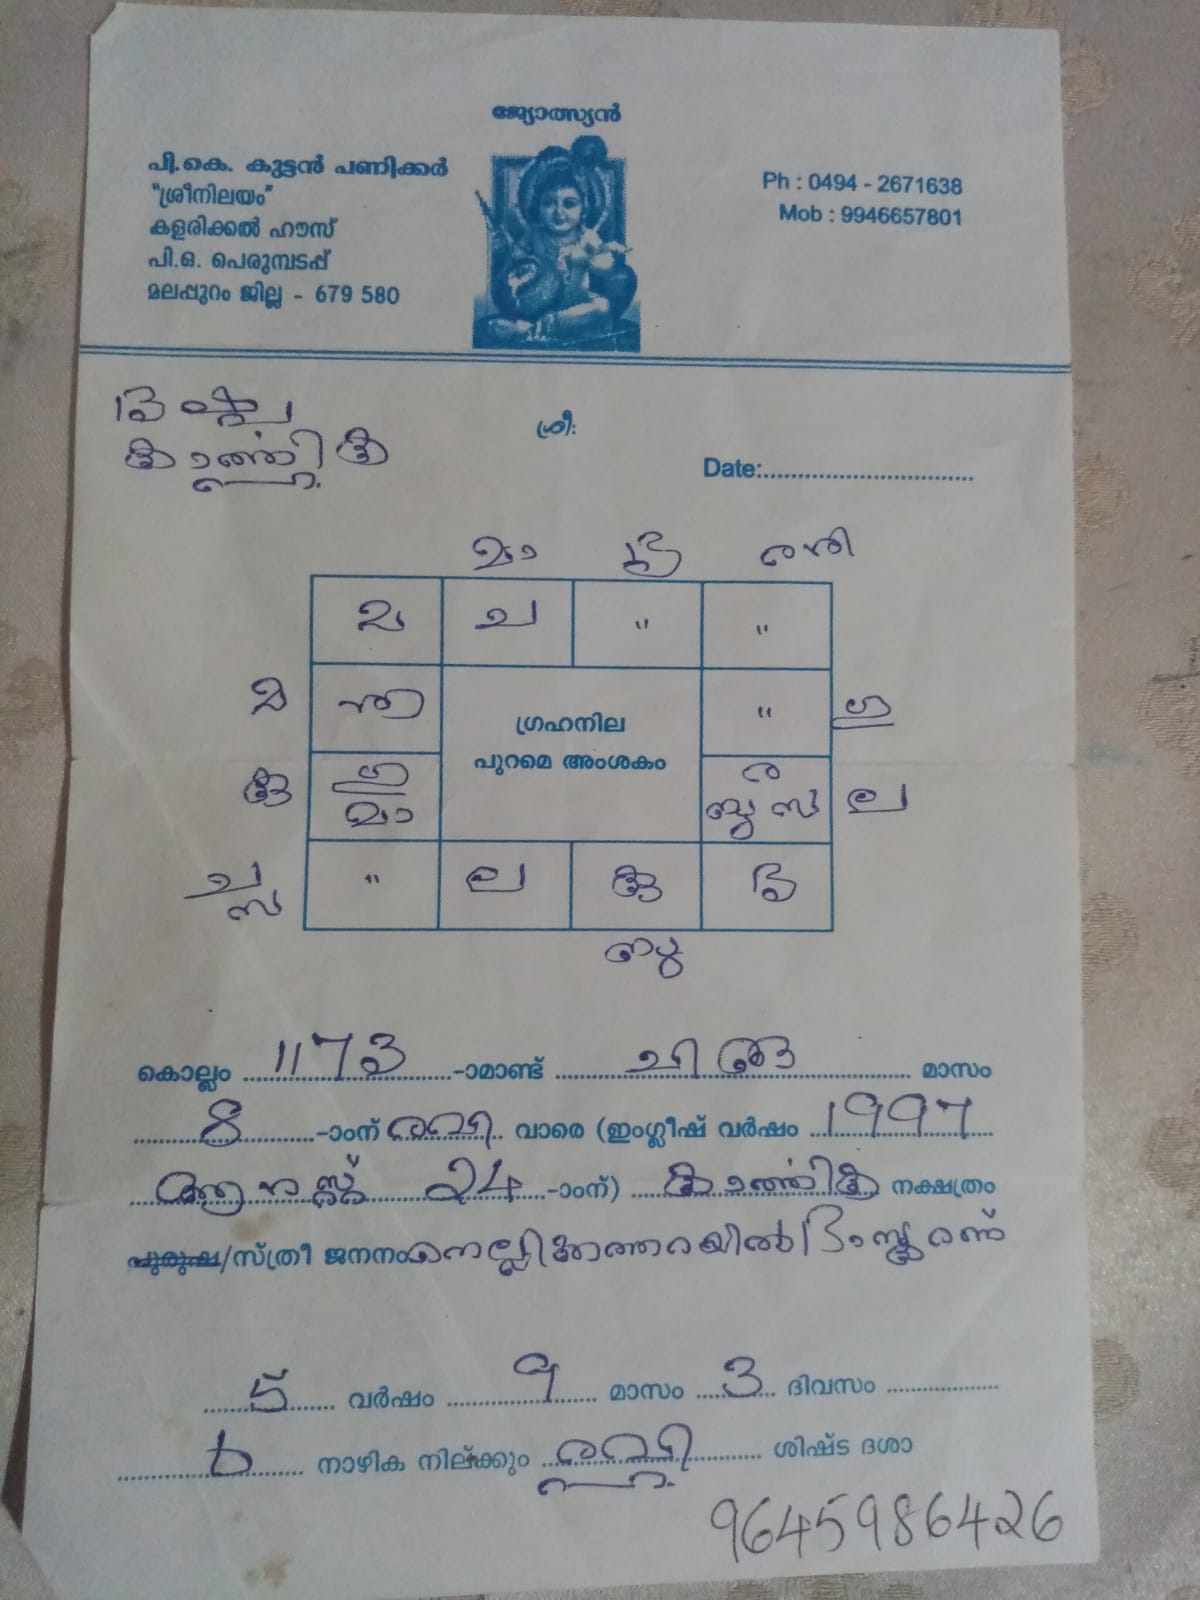 ജ്യോത്സ്യൻ
പി.കെ. കുട്ടൻ പണിക്കർ
"ശ്രീനിലയം"
കളരിക്കൽ ഹൗസ്
പി.ഒ. പെരുമ്പടപ്പ്
മലപ്പുറം ജില്ല - 679 580
Ph : 0494 - 2671638
Mob : 9946657801
കാർത്തിക
ശ്രീ:
Date:
മാ ശി
മ ച " "
മ "
ഗ്രഹനില
പുറമെ അംശകം
മാ ര
ബു സ ല
" ല
ബു
കൊല്ലം 1173 -ാമാണ്ട് ചിങ്ങ മാസം
8 -ാംന് രവി വാരെ (ഇംഗ്ലീഷ് വർഷം 1997
ആഗസ്റ്റ് 24 -ാംന്) കാർത്തിക നക്ഷത്രം
പുരുഷ/സ്ത്രീ ജനനം
5 വർഷം 9 മാസം 3 ദിവസം
നാഴിക നില്ക്കും രവി ശിഷ്ട ദശാ
9645986426